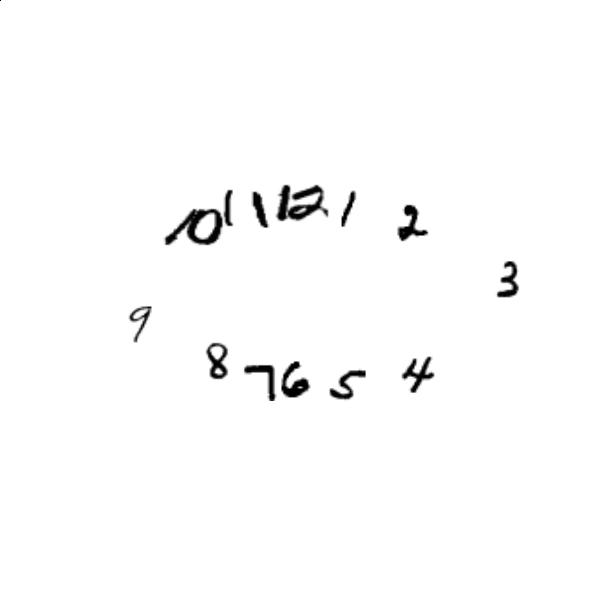 10 11 12 1 2
3
9
8 7 6 5 4